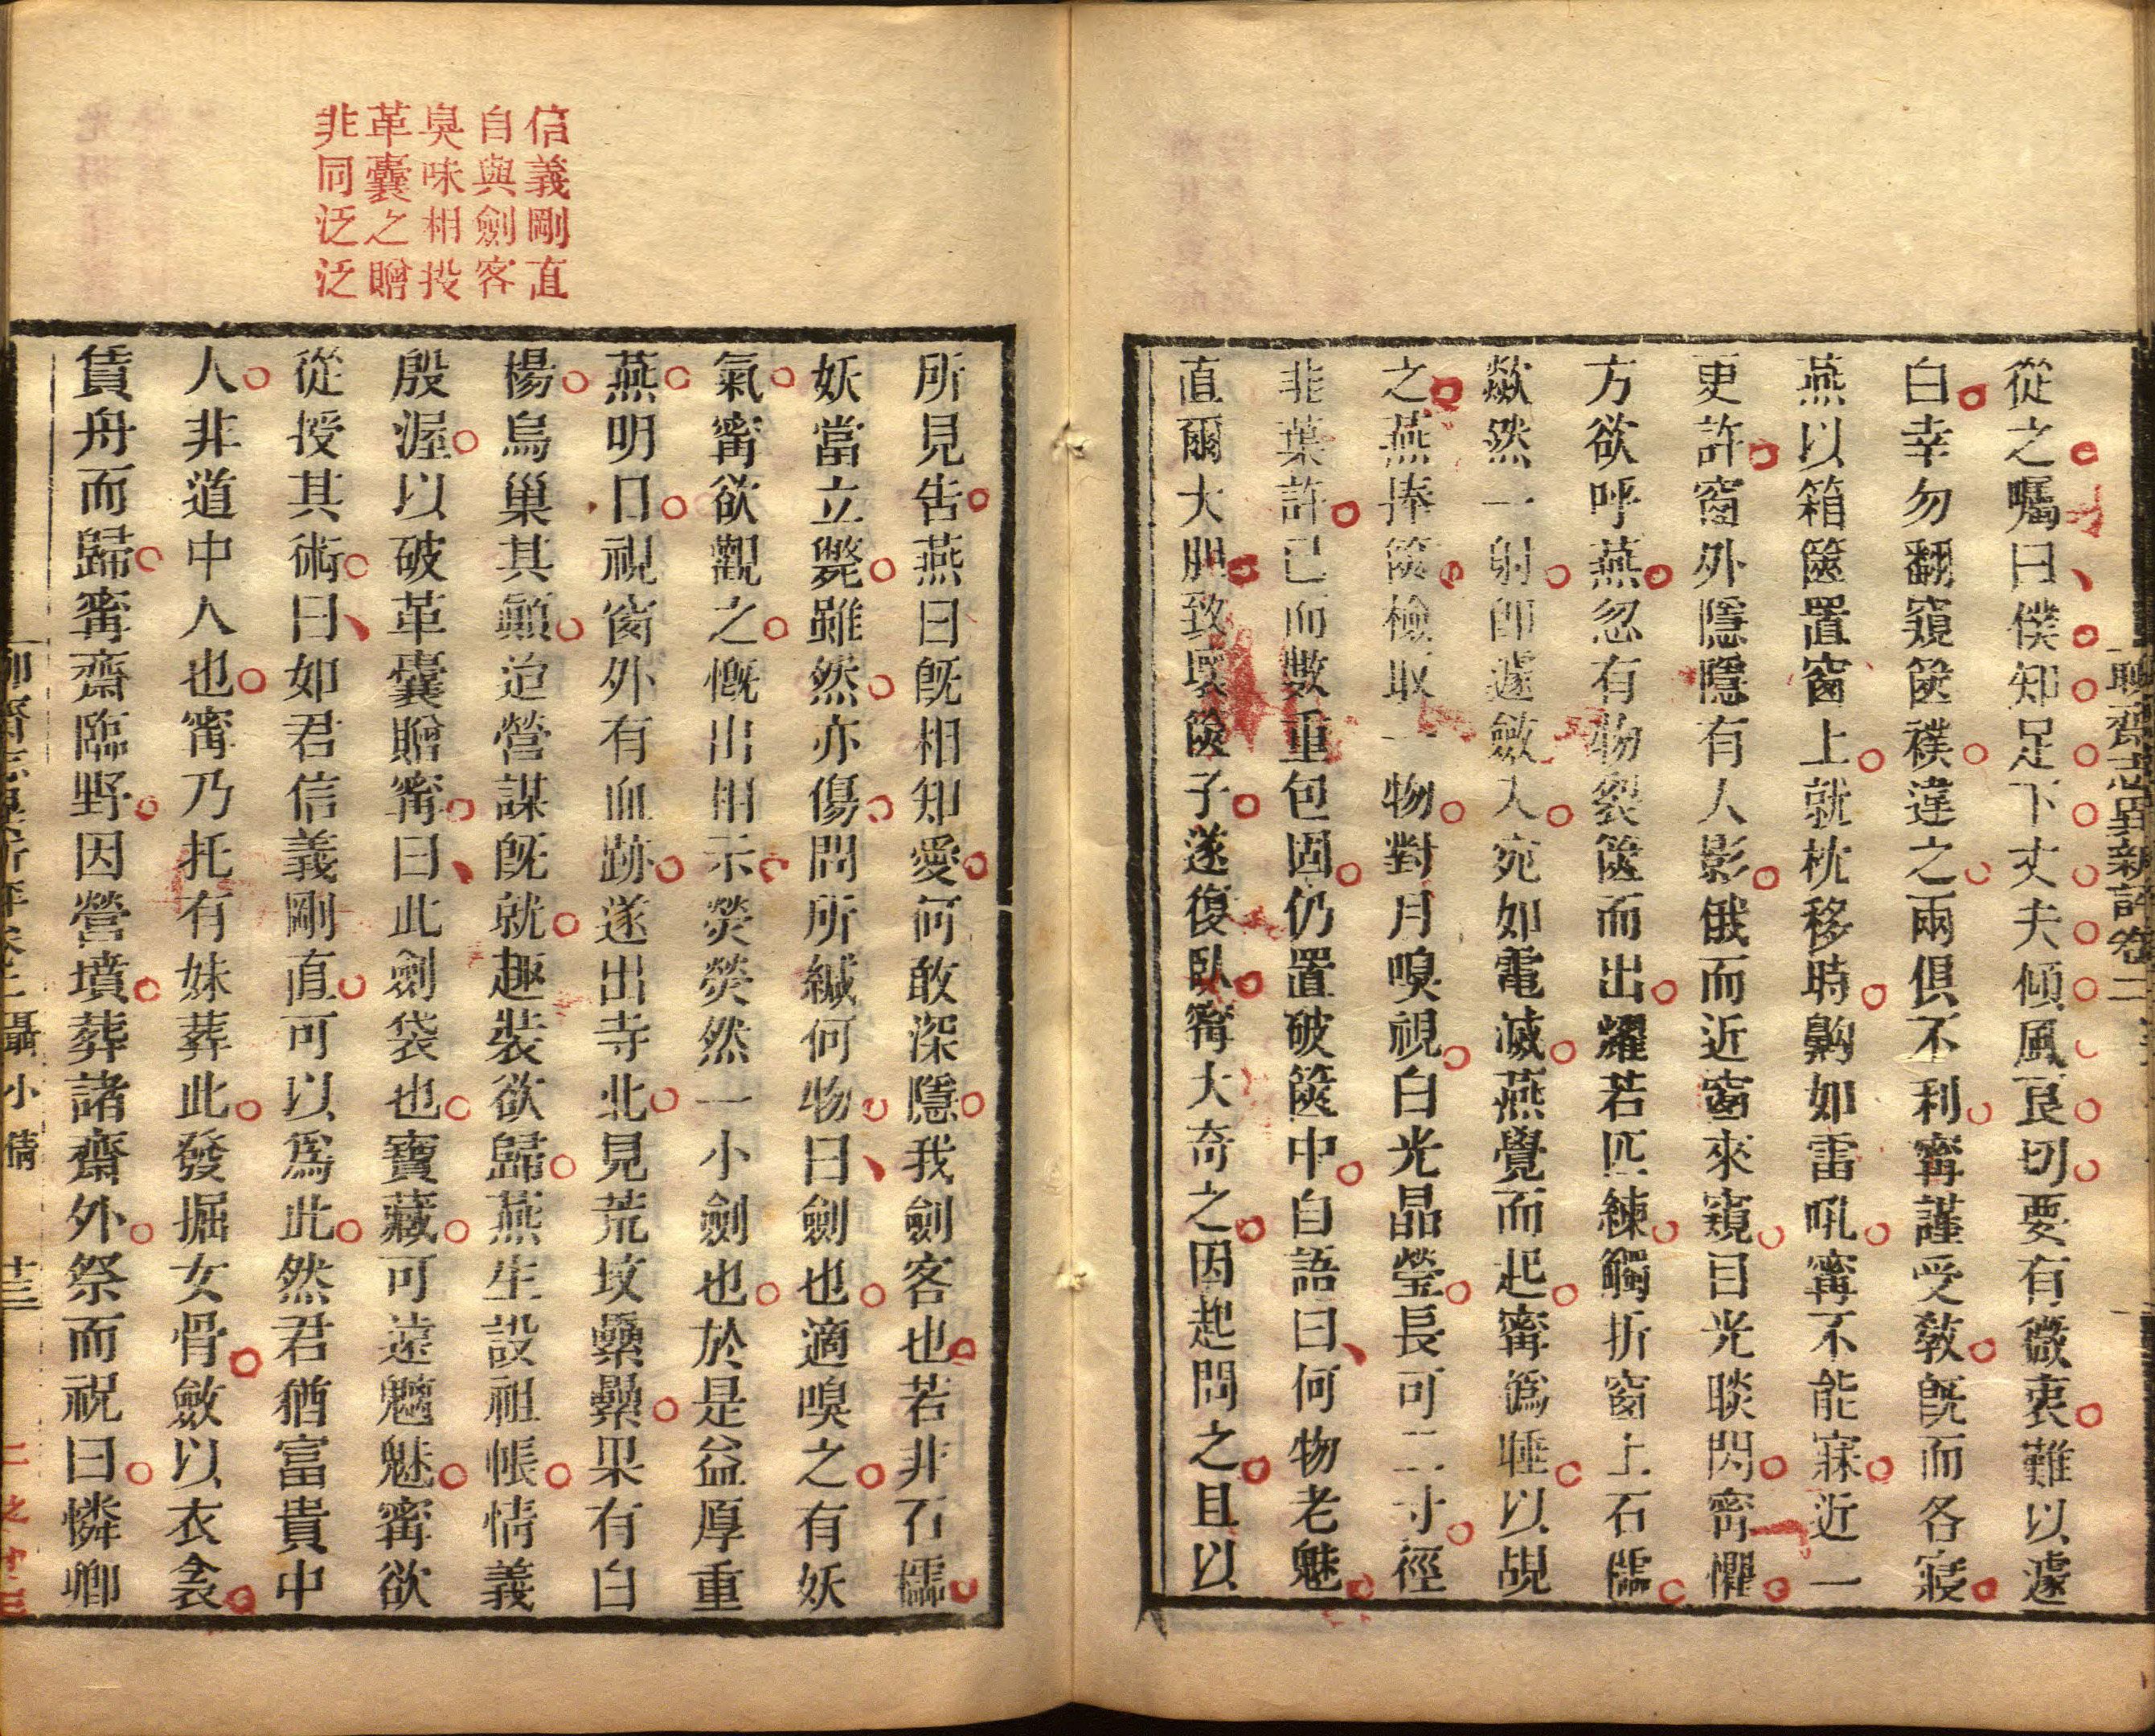 聊齋志異新評卷二
從之囑曰僕知足下丈夫傾風良切要有微衷難以遽
白幸勿翻窺篋襆違之兩俱不利甯謹受敎旣而各寢
燕以箱篋置窗上就枕移時齁如雷吼甯不能寐近一
更許窗外隱隱有人影俄而近窗來窺目光睒閃甯懼
方欲呼燕忽有物裂篋而出耀若匹練觸折窗上石櫺
歘然一射卽遽斂入宛如電滅燕覺而起甯僞睡以覘
之燕捧篋檢取一物對月嗅視白光晶瑩長可二寸徑
韭葉許已而數重包固仍置破篋中自語曰何物老魅
直爾大胆致壞篋子遂復臥甯大奇之因起問之且以
信義剛直
自與劍客
臭味相投
革囊之贈
非同泛泛
所見告燕曰旣相知愛何敢深隱我劍客也若非石櫺
妖當立斃雖然亦傷問所緘何物曰劍也適嗅之有妖
氣甯欲觀之慨出相示熒熒然一小劍也於是益厚重
燕明日視窗外有血跡遂出寺北見荒墳纍纍果有白
楊烏巢其顚迨營謀旣就趣裝欲歸燕生設祖帳情義
殷渥以破革囊贈甯曰此劍袋也寶藏可遠魑魅甯欲
從授其術曰如君信義剛直可以爲此然君猶富貴中
人非道中人也甯乃托有妹葬此發掘女骨斂以衣衾
賃舟而歸甯齋臨野因營墳葬諸齋外祭而祝曰憐卿
聶小倩 十三
二之十三